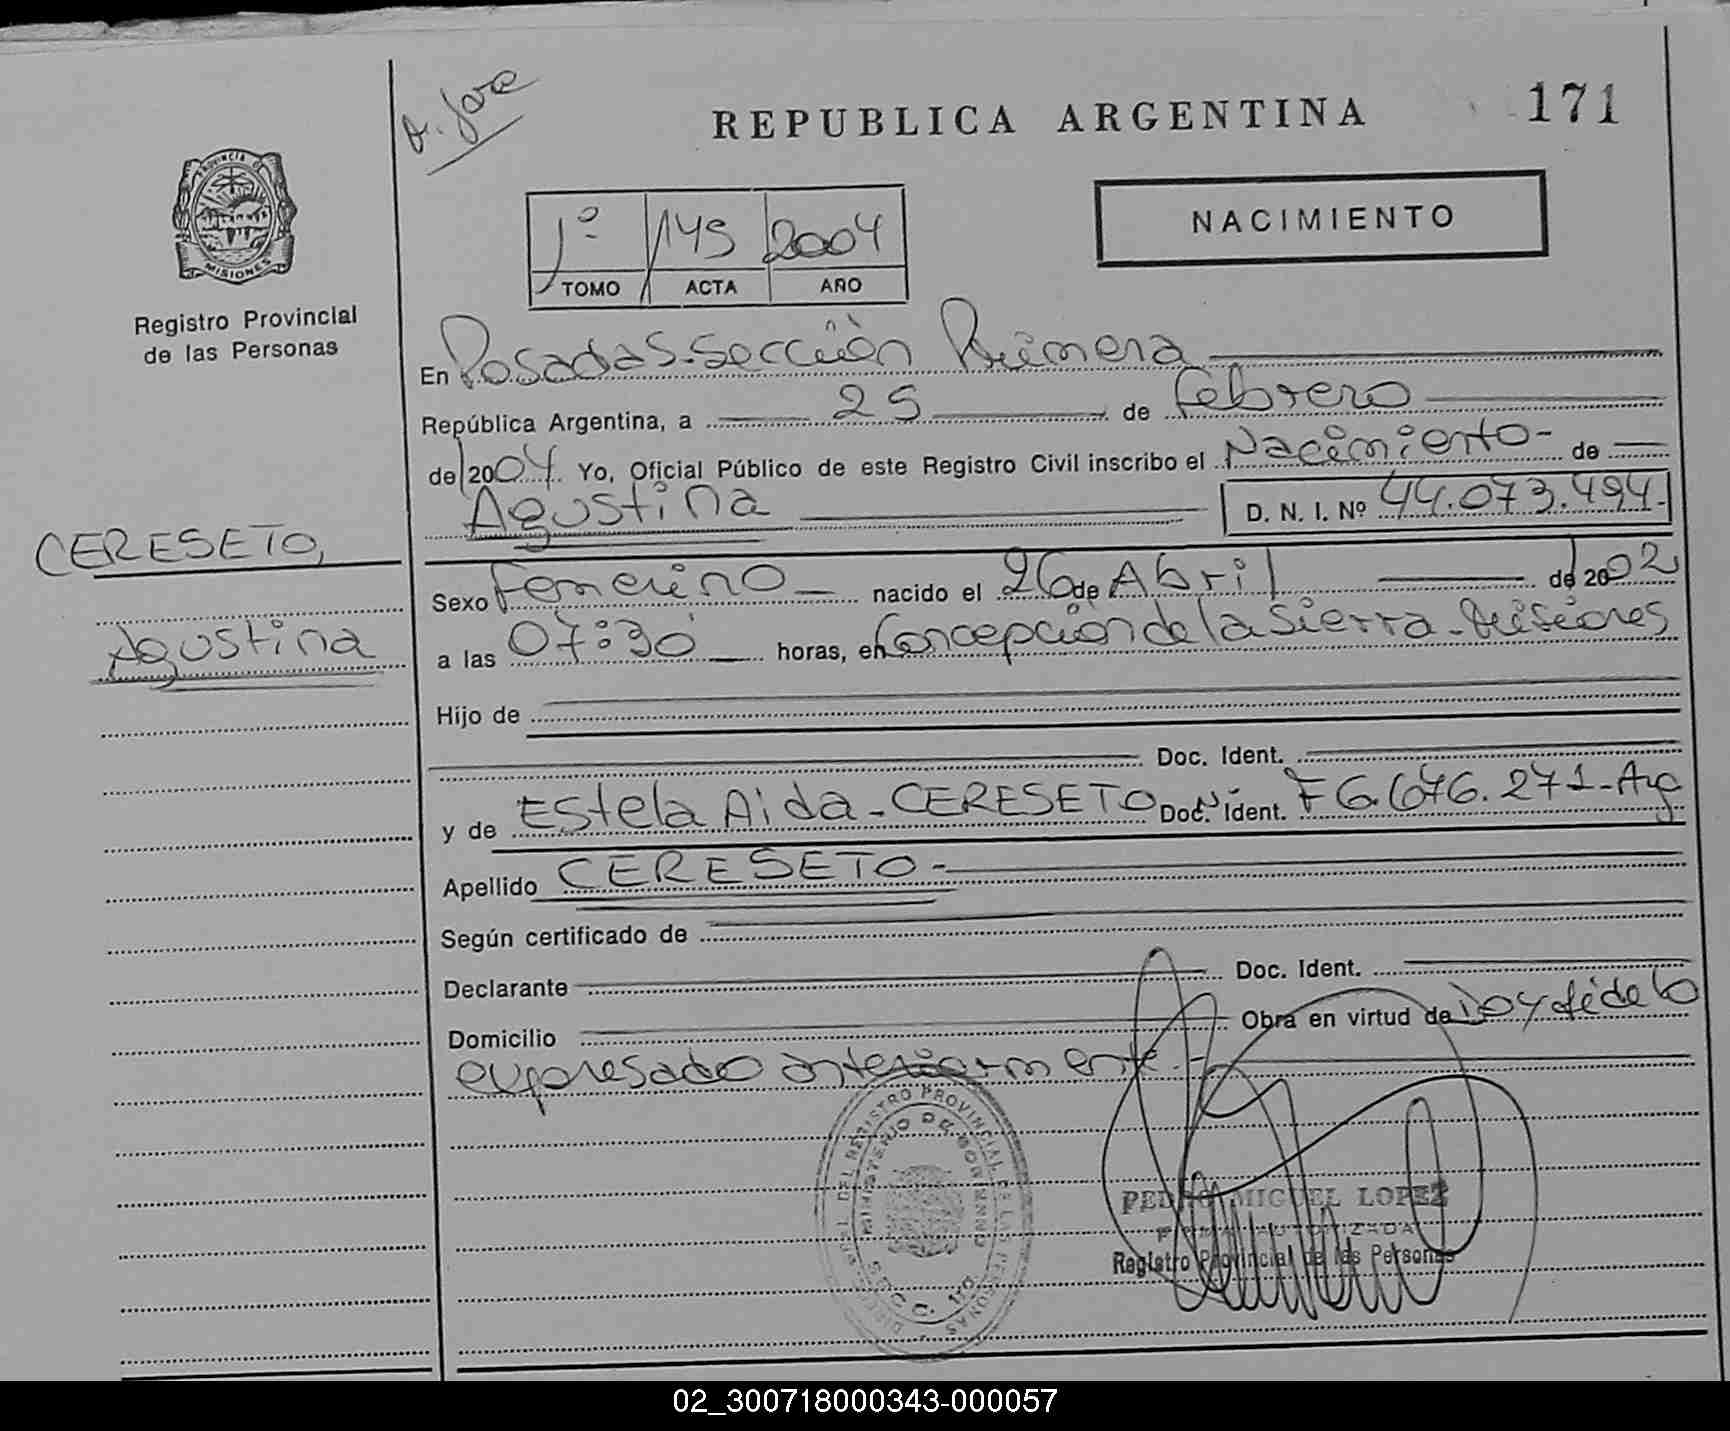 REPUBLICA ARGENTINA
171
PROVINCIA DE
MISIONES
Registro Provincial
de las Personas
NACIMIENTO
1º 145 2004
TOMO ACTA AÑO
En Posadas-Sección Primera
República Argentina, a 25 de Febrero
de 2004. Yo, Oficial Público de este Registro Civil inscribo el Nacimiento- de
Agustina
D. N. I. Nº 44.073.494.
CERESETO,
Agustina
Sexo Femenino nacido el 26 de Abril de 2002
a las 07:30 horas, en Concepción de la Sierra-Misiones
Hijo de
Doc. Ident.
y de Estela Aida-CERESETO Doc. Ident. F6.676.271-Arg
Apellido CERESETO-
Según certificado de
Declarante Doc. Ident.
Domicilio Obra en virtud de Doy fé de lo
expresado anteriormente.-
DEL REGISTRO PROVINCIAL DE LAS PERSONAS
MINISTERIO DE GOBIERNO
SECC. 1ra.
PEDRO MIGUEL LOPEZ
FIRMA AUTORIZADA
Registro Provincial de las Personas
02_300718000343-000057